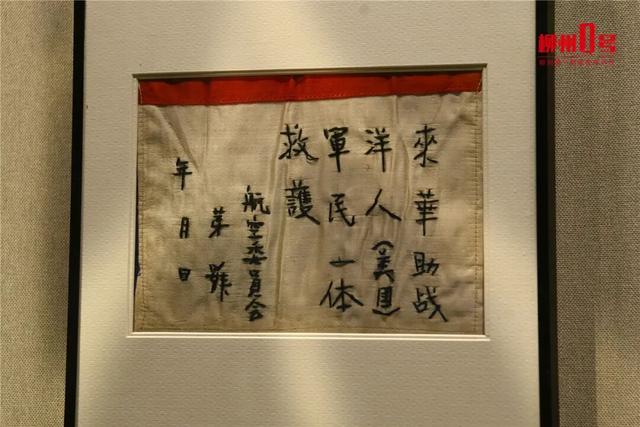 來華助战
洋人(美国)
軍民一体
救護
航空委員会
第號
年月日
柳州1号